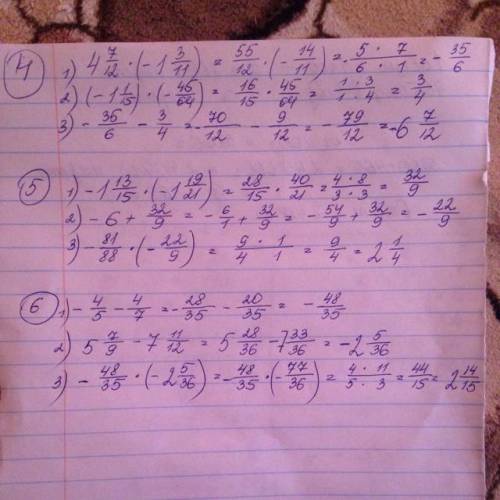 4 1) 4 7/12 · (-1 3/11) = 55/12 · (-14/11) = -5 · 7/6 · 1 = -35/6
2) (-1 1/15) · (-45/64) = 16/15 · 45/64 = 1 · 3/1 · 4 = 3/4
3) -35/6 - 3/4 = -70/12 - 9/12 = -79/12 = -6 7/12
5 1) -1 13/15 · (-1 19/21) = 28/15 · 40/21 = 4 · 8/3 · 3 = 32/9
2) -6 + 32/9 = -6/1 + 32/9 = -54/9 + 32/9 = -22/9
3) -81/88 · (-22/9) = 9 · 1/4 · 1 = 9/4 = 2 1/4
6 1) -4/5 - 4/7 = -28/35 - 20/35 = -48/35
2) 5 7/9 - 7 11/12 = 5 28/36 - 7 33/36 = -2 5/36
3) -48/35 · (-2 5/36) = -48/35 · (-77/36) = 4 · 11/5 · 3 = 44/15 = 2 14/15